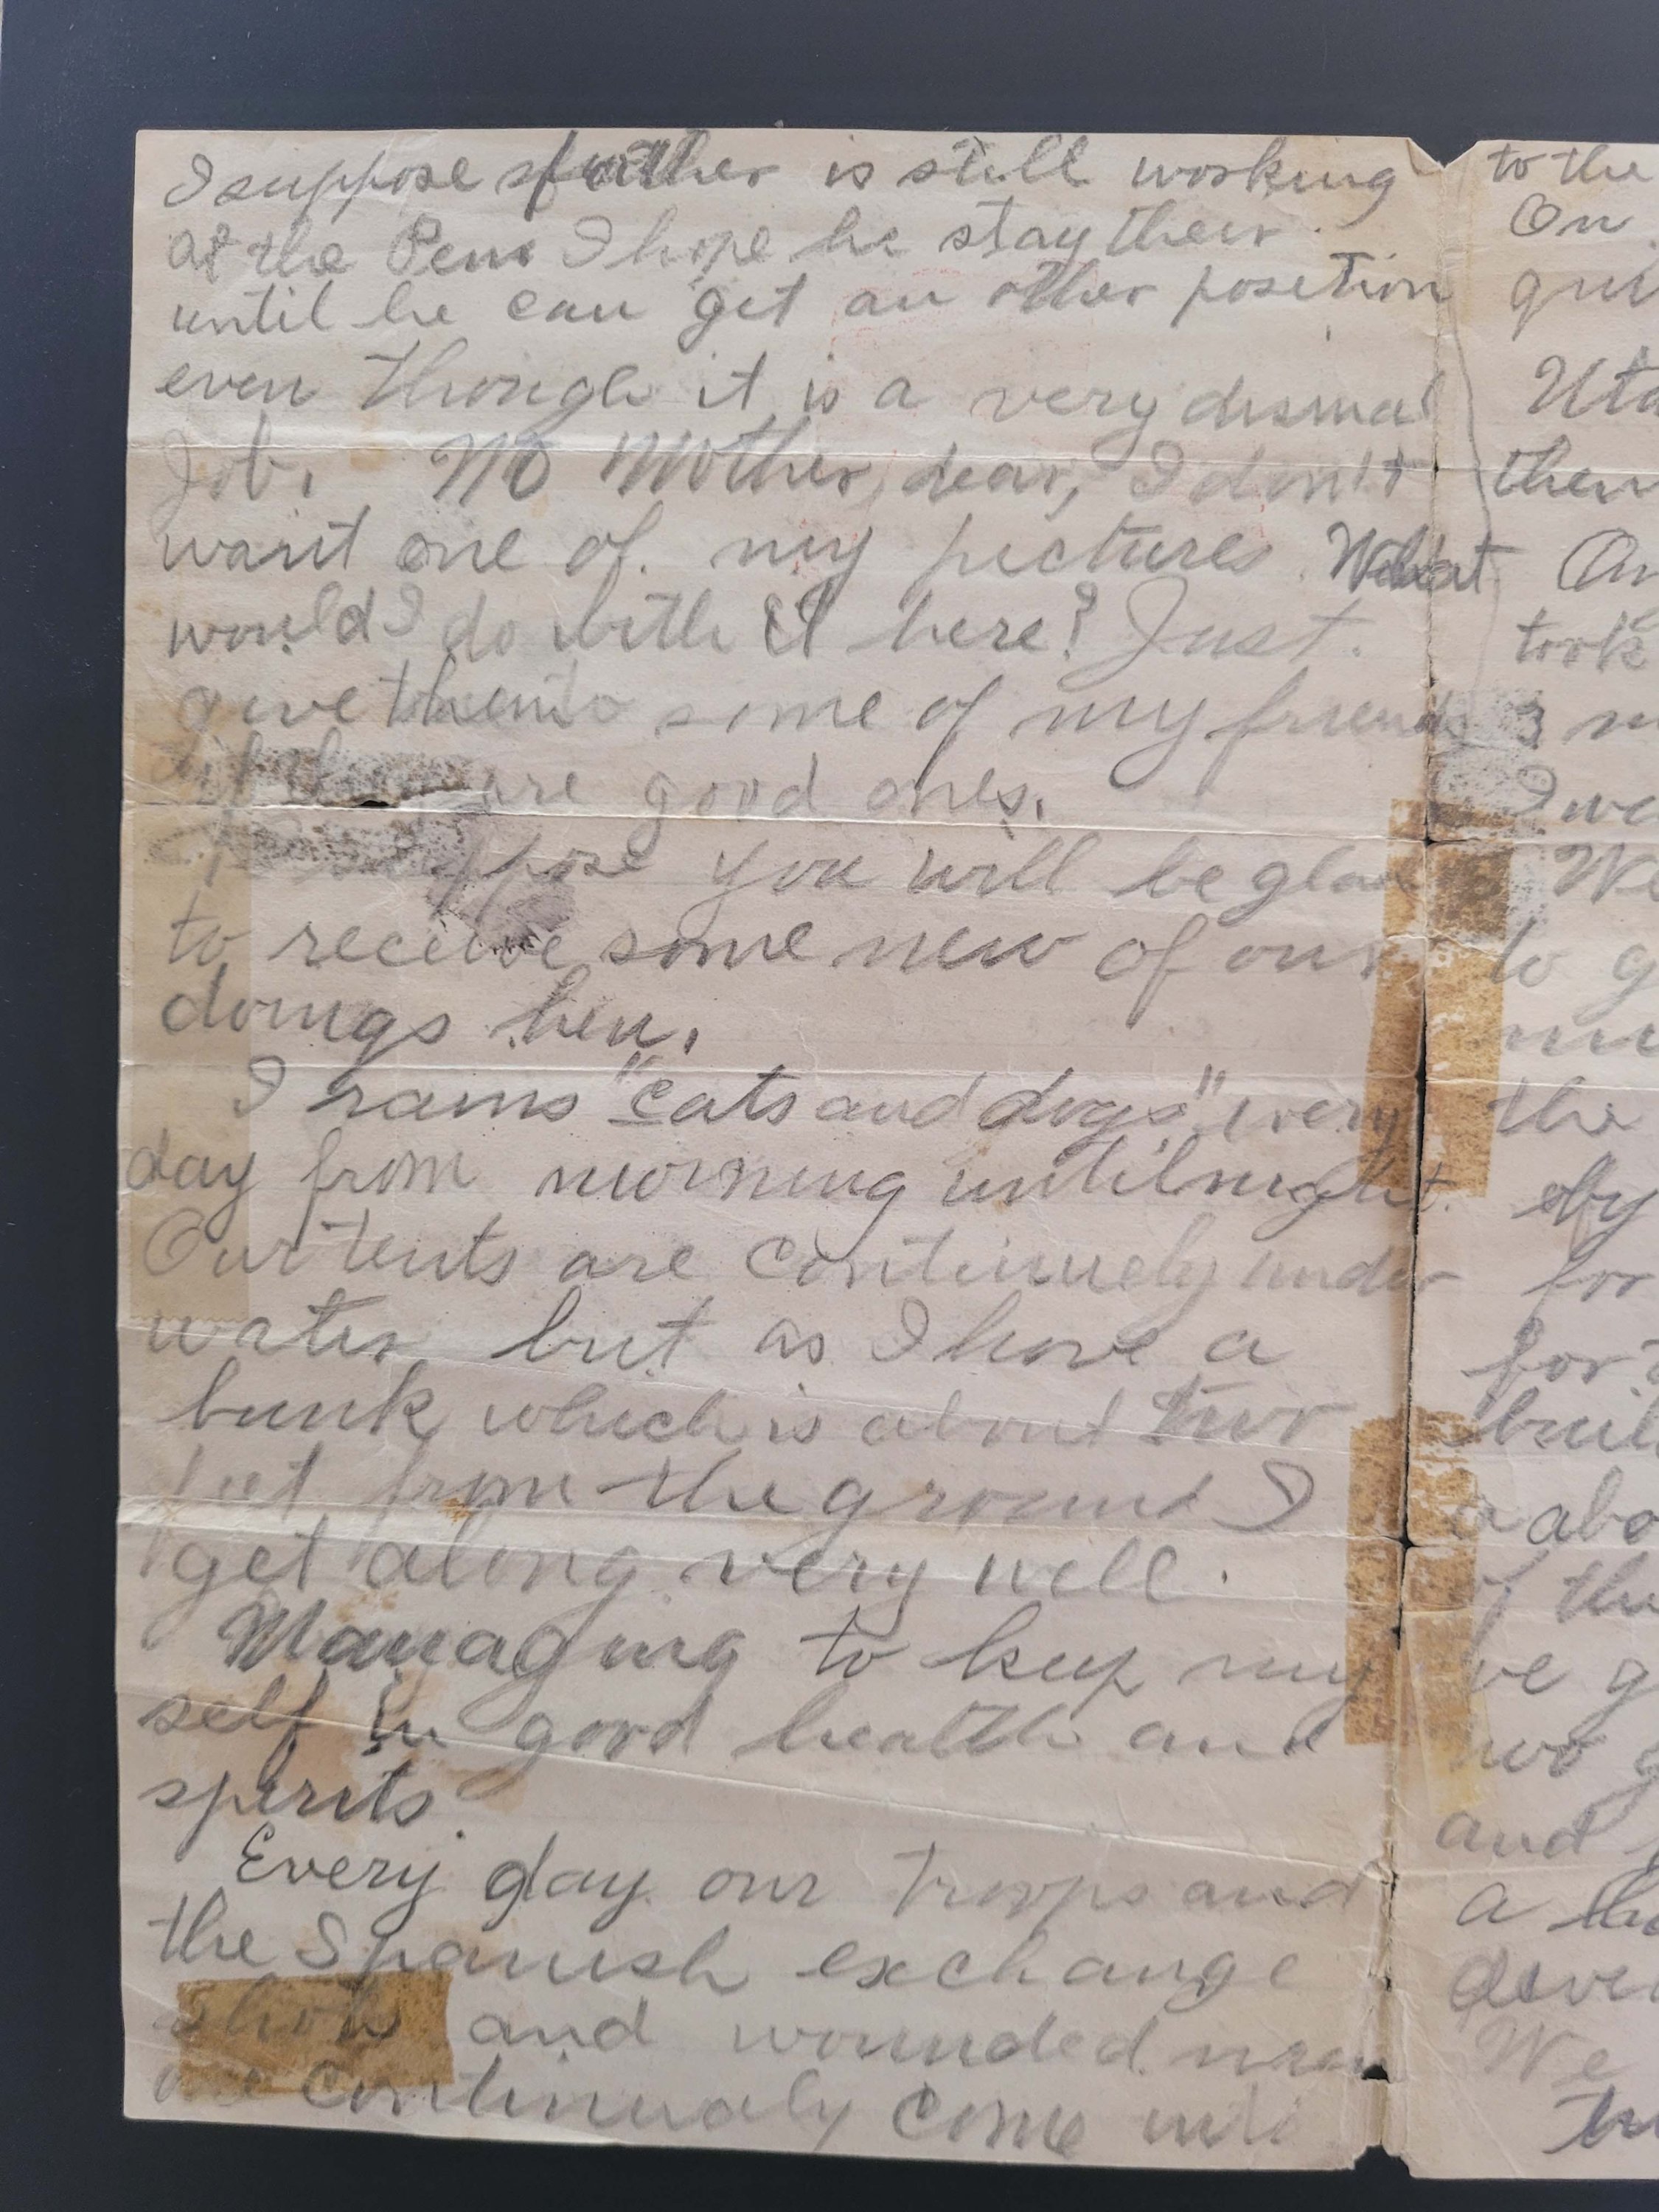 I suppose father is still working
at the Pen. I hope he stay their
until he can get an other position
even though it is a very dismal
job. No Mother, dear, I don't
want one of my pictures. What
would I do with it here? Just
give them to some of my friends
if they are good ones.
I suppose you will be glad
to receive some new of our
doings here.
I rains "cats and dogs" every
day from morning until night.
Our tents are continuely under
water but as I have a
bunk which is about two
feet from the ground I
get along very well.
Managing to keep my
self in good health and
spirits.
Every day our troops and
the Spanish exchange
shots and wounded men
are continualy come into
to the
On
Uta
then
took
3
I wa
We
to g
the
by
for
for
buil
abo
if the
we g
two g
and
a
We